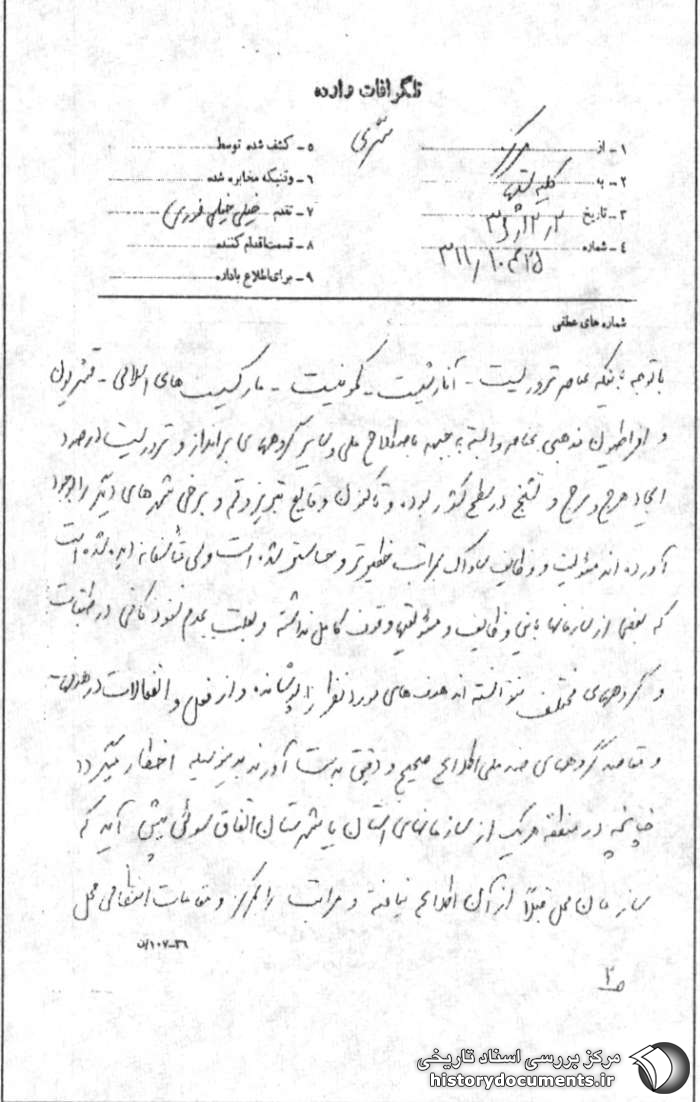 تلگرافات وارده
سرّی
۱ - از مرکز
۲ - به کلیه
۳ - تاریخ
۴ - شماره ۳۱۱/
۵ - کشف شده توسط
۶ - وقتیکه مخابره شده
۷ - تقدم خیلی خیلی فوری
۸ - قسمت اقدام کننده
۹ - برای اطلاع باداره
شماره های عطفی
باتوجه باینکه عناصر تروریست - آنارشیست - کمونیست - مارکسیست های اسلامی - قشریون
و افراطیون مذهبی عناصر وابسته به جبهه باصطلاح ملی و سایر گروههای برانداز و تروریست درصدد
ایجاد هرج و مرج و تشنج در سطح کشور بوده و تاکنون وقایع تبریز و قم و برخی شهرهای دیگر را بوجود
آورده اند مسئولیت و وظایف ساواک بمراتب خطیرتر و حساستر شده است ولی متأسفانه دیده شده است
که بعضی از سازمانها باین وظایف و مسئولیتها وقوف کامل نداشته و بعلت عدم نفوذ کافی در طبقات
و گروههای مختلف نتوانسته اند هدف های مورد نظر را بپوشانند و از فعل و انفعالات درونی
و مقاصد گروههای ضد ملی اطلاع صحیح و دقیق بدست آورند بدینوسیله اخطار میگردد
چنانچه در منطقه هریک از سازمانهای استان یا شهرستان اتفاق سوئی پیش آید که
سازمان محل قبلاً از آن اطلاع نیافته و مراتب را بمرکز و مقامات انتظامی محل
۳۶-۱۰۷/ن
مرکز بررسی اسناد تاریخی
historydocuments.ir